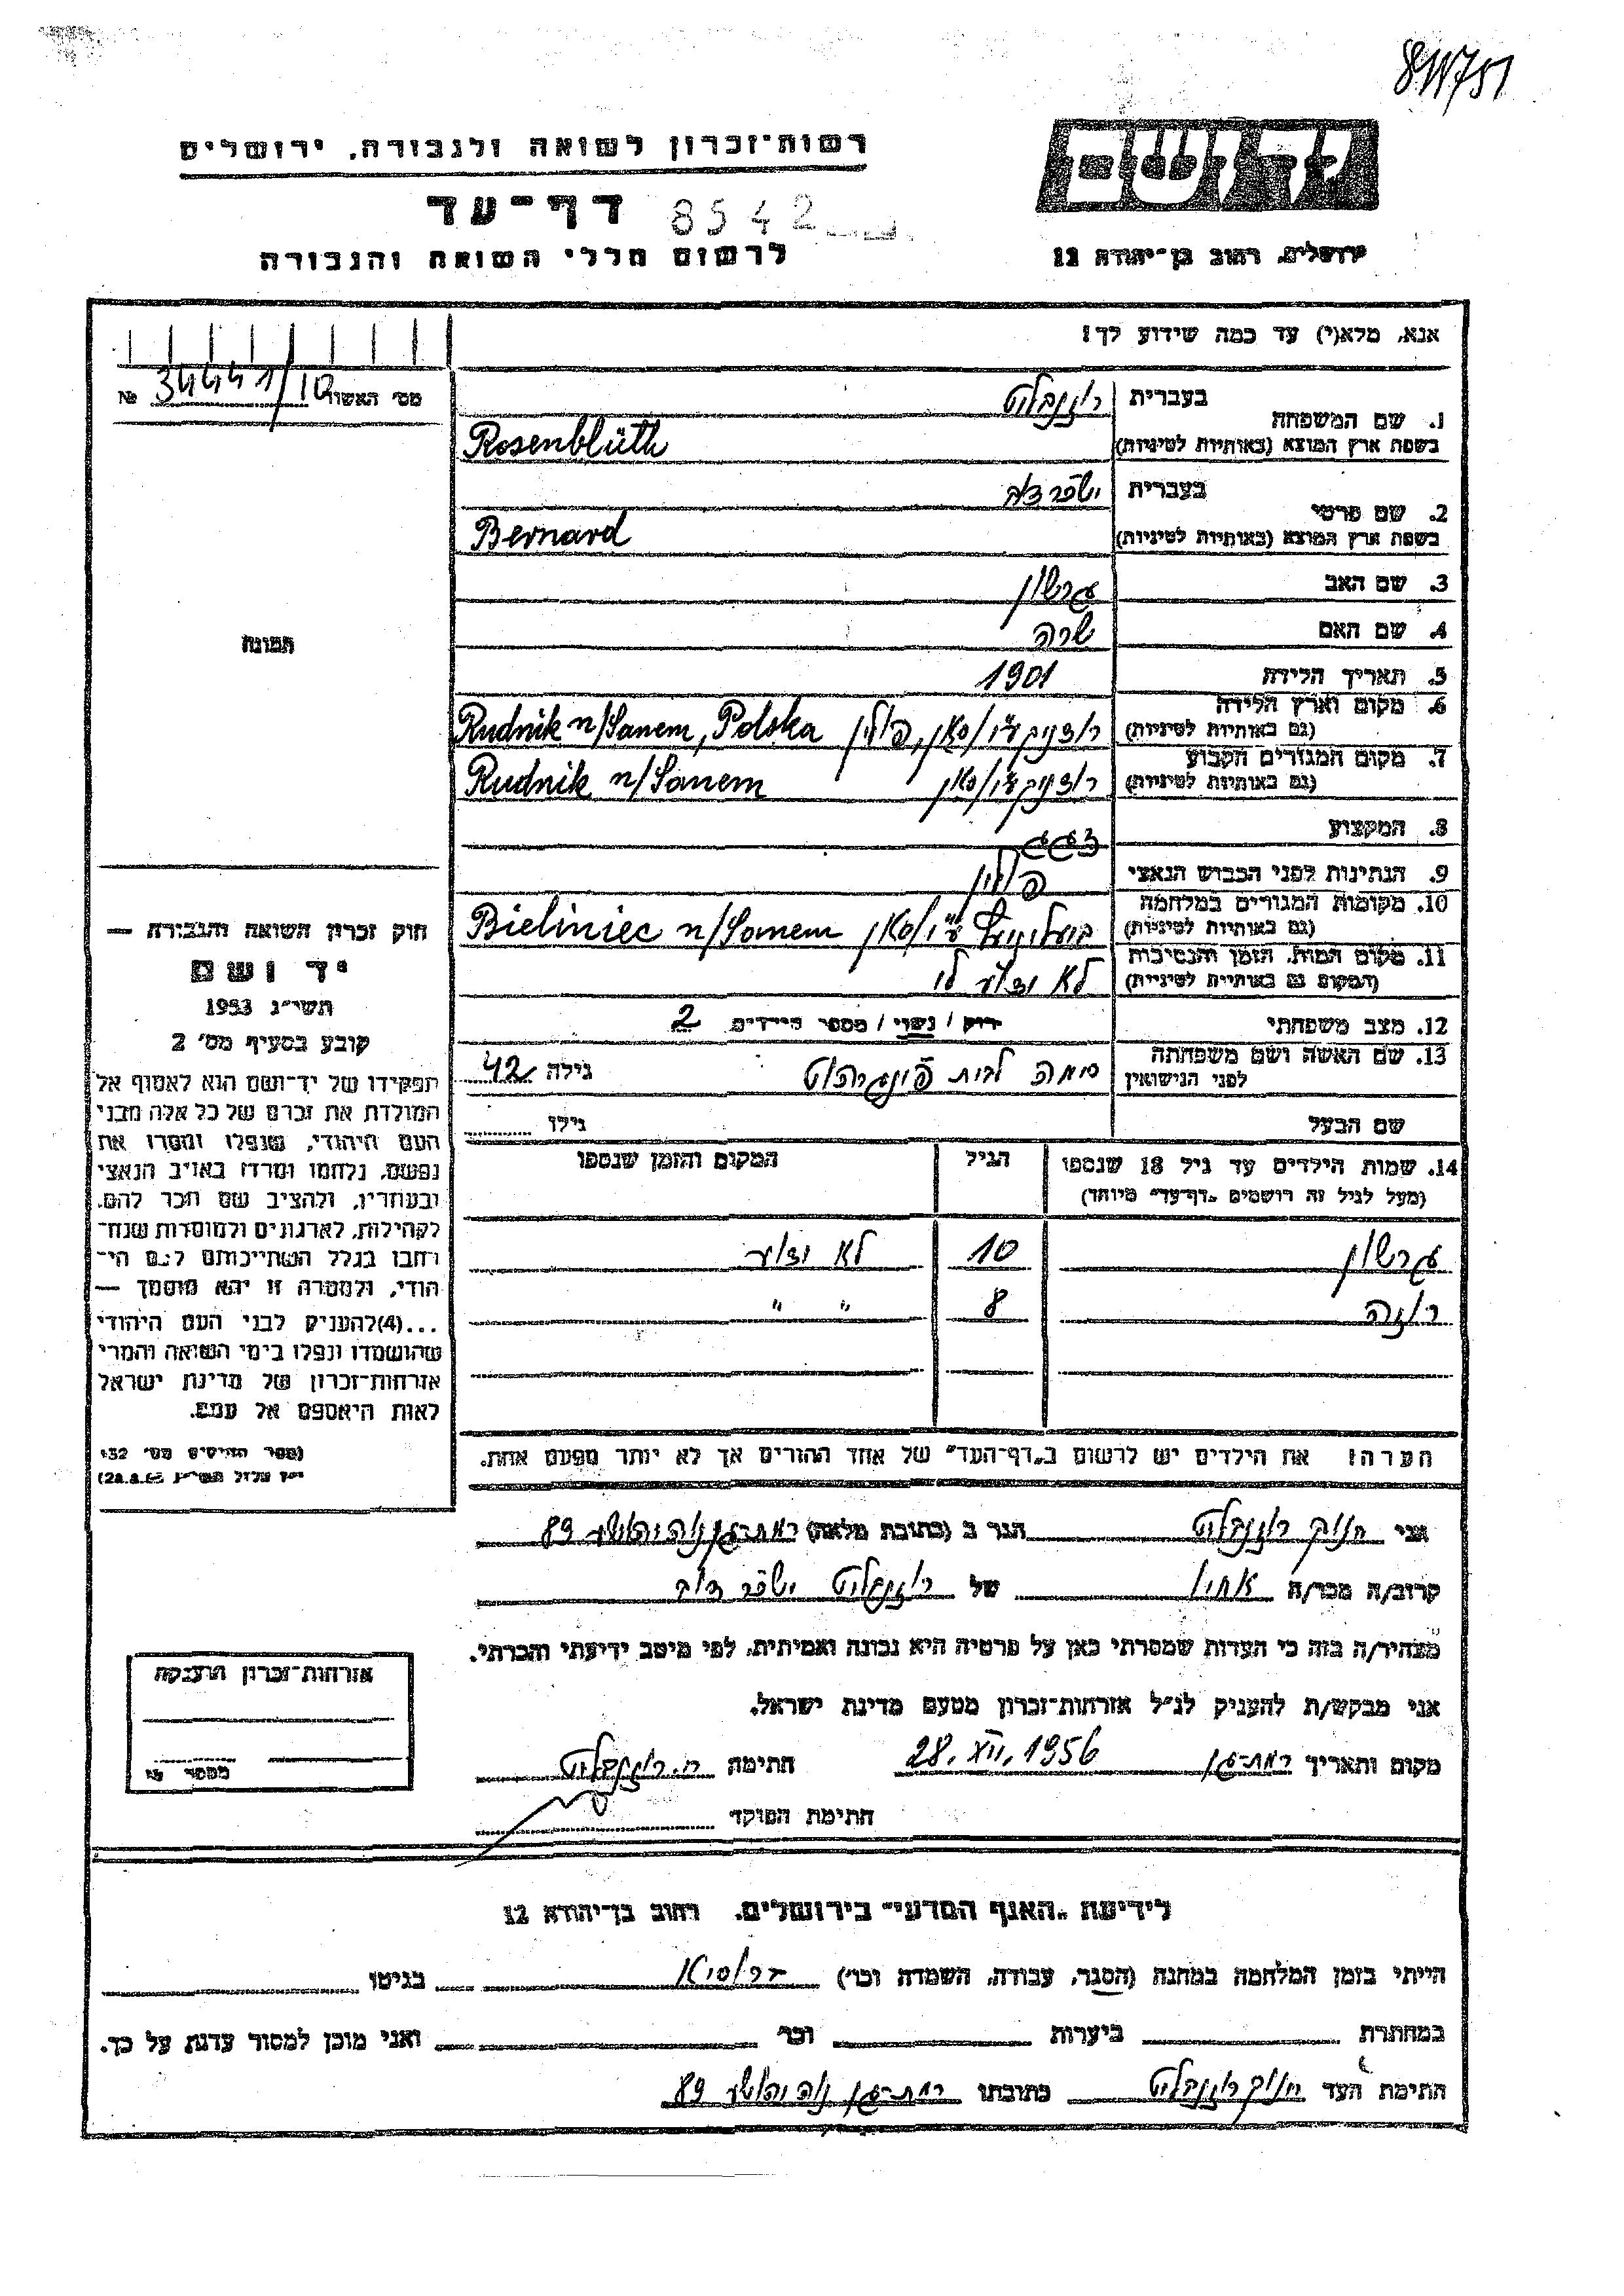 811751
רשות־זכרון לשואה ולגבורה, ירושלים
דף־עד 8542
לרשום חללי השואה והגבורה
יד ושם
ירושלים, רחוב בן־יהודה 12
אנא, מלא(י) עד כמה שידוע לך!
מס' האשור 34441/10 №
1. שם המשפחה
בעברית רוזנבליט
בשפת ארץ המוצא (באותיות לטיניות) Rosenblüth
2. שם פרטי
בעברית יששכר דוב
בשפת ארץ המוצא (באותיות לטיניות) Bernard
3. שם האב גרשון
4. שם האם שרה
5. תאריך הלידה 1901
6. מקום וארץ הלידה
(גם באותיות לטיניות) רודניק ע״נ/סאן, פולין Rudnik n/Sanem, Polska
7. מקום המגורים הקבוע
(גם באותיות לטיניות) רודניק ע״נ/סאן Rudnik n/Sanem
8. המקצוע
9. הנתינות לפני הכבוש הנאצי פולין
10. מקומות המגורים במלחמה
(גם באותיות לטיניות) ע״נ/סאן Bieliniec n/Sanem
11. מקום המות, הזמן והנסיבות
(המקום גם באותיות לטיניות) לא ידוע לי
12. מצב משפחתי רווק / נשוי / מספר הילדים 2
13. שם האשה ושם משפחתה
לפני הנישואין לבית גילה 42
שם הבעל גילו
14. שמות הילדים עד גיל 18 שנספו
(מעל לגיל זה רושמים „דף־עד״ מיוחד)
הגיל
המקום והזמן שנספו
גרשון 10 לא ידוע
רוזה 8 ״ ״
הערה! את הילדים יש לרשום ב„דף־העד״ של אחד ההורים אך לא יותר מפעם אחת.
תמונה
חוק זכרון השואה והגבורה —
יד ושם
תשי״ג 1953
קובע בסעיף מס' 2
תפקידו של יד־ושם הוא לאסוף אל
המולדת את זכרם של כל אלה מבני
העם היהודי, שנפלו ומסרו את
נפשם, נלחמו ומרדו באויב הנאצי
ובעוזריו, ולהציב שם וזכר להם,
לקהילות, לארגונים ולמוסדות שנח־
רבו בגלל השתייכותם לעם הי־
הודי, ולמטרה זו יהא מוסמך —
...(4) להעניק לבני העם היהודי
שהושמדו ונפלו בימי השואה והמרי
אזרחות־זכרון של מדינת ישראל
לאות היאספם אל עמם.
(ספר החוקים מס' 132
אני חנוך רוזנבליט הגר ב (כתובת מלאה) רמת־גן נוה יהושע 89
קרוב/ה מכר/ה אחיו של רוזנבליט יששכר דוב
מצהיר/ה בזה כי העדות שמסרתי כאן על פרטיה היא נכונה ואמיתית, לפי מיטב ידיעתי והכרתי.
אני מבקש/ת להעניק לנ״ל אזרחות־זכרון מטעם מדינת ישראל.
מקום ותאריך רמת־גן 28.XII.1956 חתימה ח. רוזנבליט
חתימת הפוקד
אזרחות־זכרון הוענקה
לידיעת „האגף המדעי״ בירושלים, רחוב בן־יהודה 12
הייתי בזמן המלחמה במחנה (הסגר, עבודה, השמדה וכו') ברוסיא בגיטו
במחתרת ביערות וכו' ואני מוכן למסור עדות על כך.
חתימת העד חנוך רוזנבליט כתובתו רמת־גן נוה יהושע 89